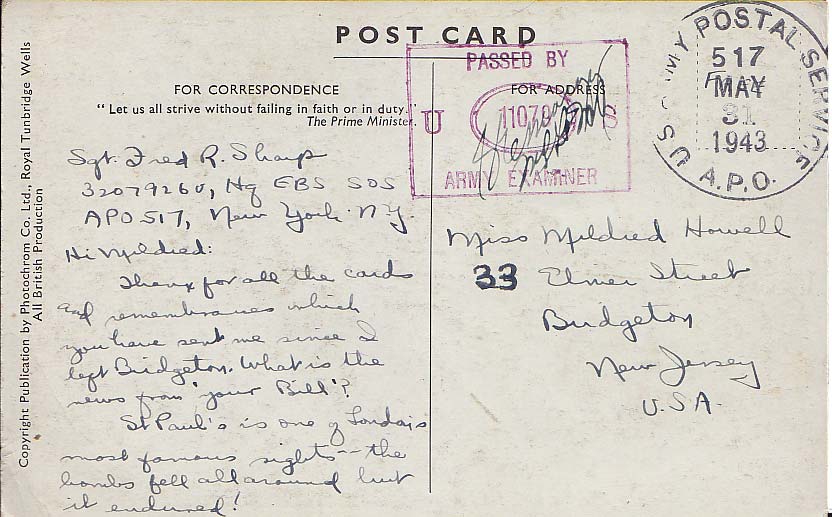 POST CARD
FOR CORRESPONDENCE
"Let us all strive without failing in faith or in duty."
The Prime Minister.
Sgt. Fred R. Sharp
32079260, Hq EBS SOS
APO 517, New York. N.Y.
Hi Mildred:
Thanx for all the cards
and remembrances which
you have sent me since I
left Bridgeton. What is the
news from 'your Bill'?
St Paul's is one of London's
most famous sights -- the
bombs fell all around but
it endured!
Copyright Publication by Photochrom Co., Ltd., Royal Tunbridge Wells
All British Production
PASSED BY
FOR ADDRESS
U 11079 S
ARMY EXAMINER
U.S. ARMY POSTAL SERVICE
517
MAY
31
1943
A.P.O.
Miss Mildred Howell
33 Elmer Street
Bridgeton
New Jersey
U.S.A.